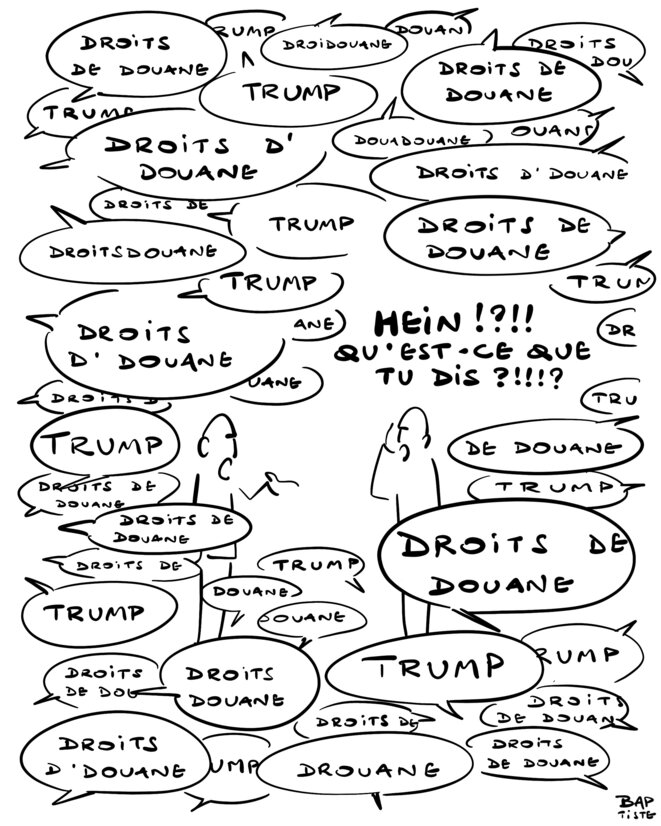 DROITS
DE DOUANE
RUMP
DROIDOUANE
DOUAN
DROITS
DOU
TRUMP
DROITS DE
DOUANE
TRUMP
DROITS D'
DOUANE
DOUADOUANE
OUANE
DROITS D'DOUANE
DROITS DE
TRUMP
DROITS DE
DOUANE
DROITSDOUANE
TRUMP
TRUM
DROITS
D'DOUANE
ANE
HEIN !?!!
QU'EST-CE QUE
TU DIS ?!!!?
DR
UANE
DROITS D
TRU
TRUMP
DE DOUANE
DROITS DE
DOUANE
TRUMP
DROITS DE
DOUANE
DROITS DE
DOUANE
DROITS DE
TRUMP
TRUMP
DOUANE
OUANE
TRUMP
RUMP
DROITS
DE DOU
DROITS
DOUANE
DROITS
DE DOUAN
DROITS DE
DROITS
D'DOUANE
UMP
DROUANE
DROITS
DE DOUANE
BAP
TISTE